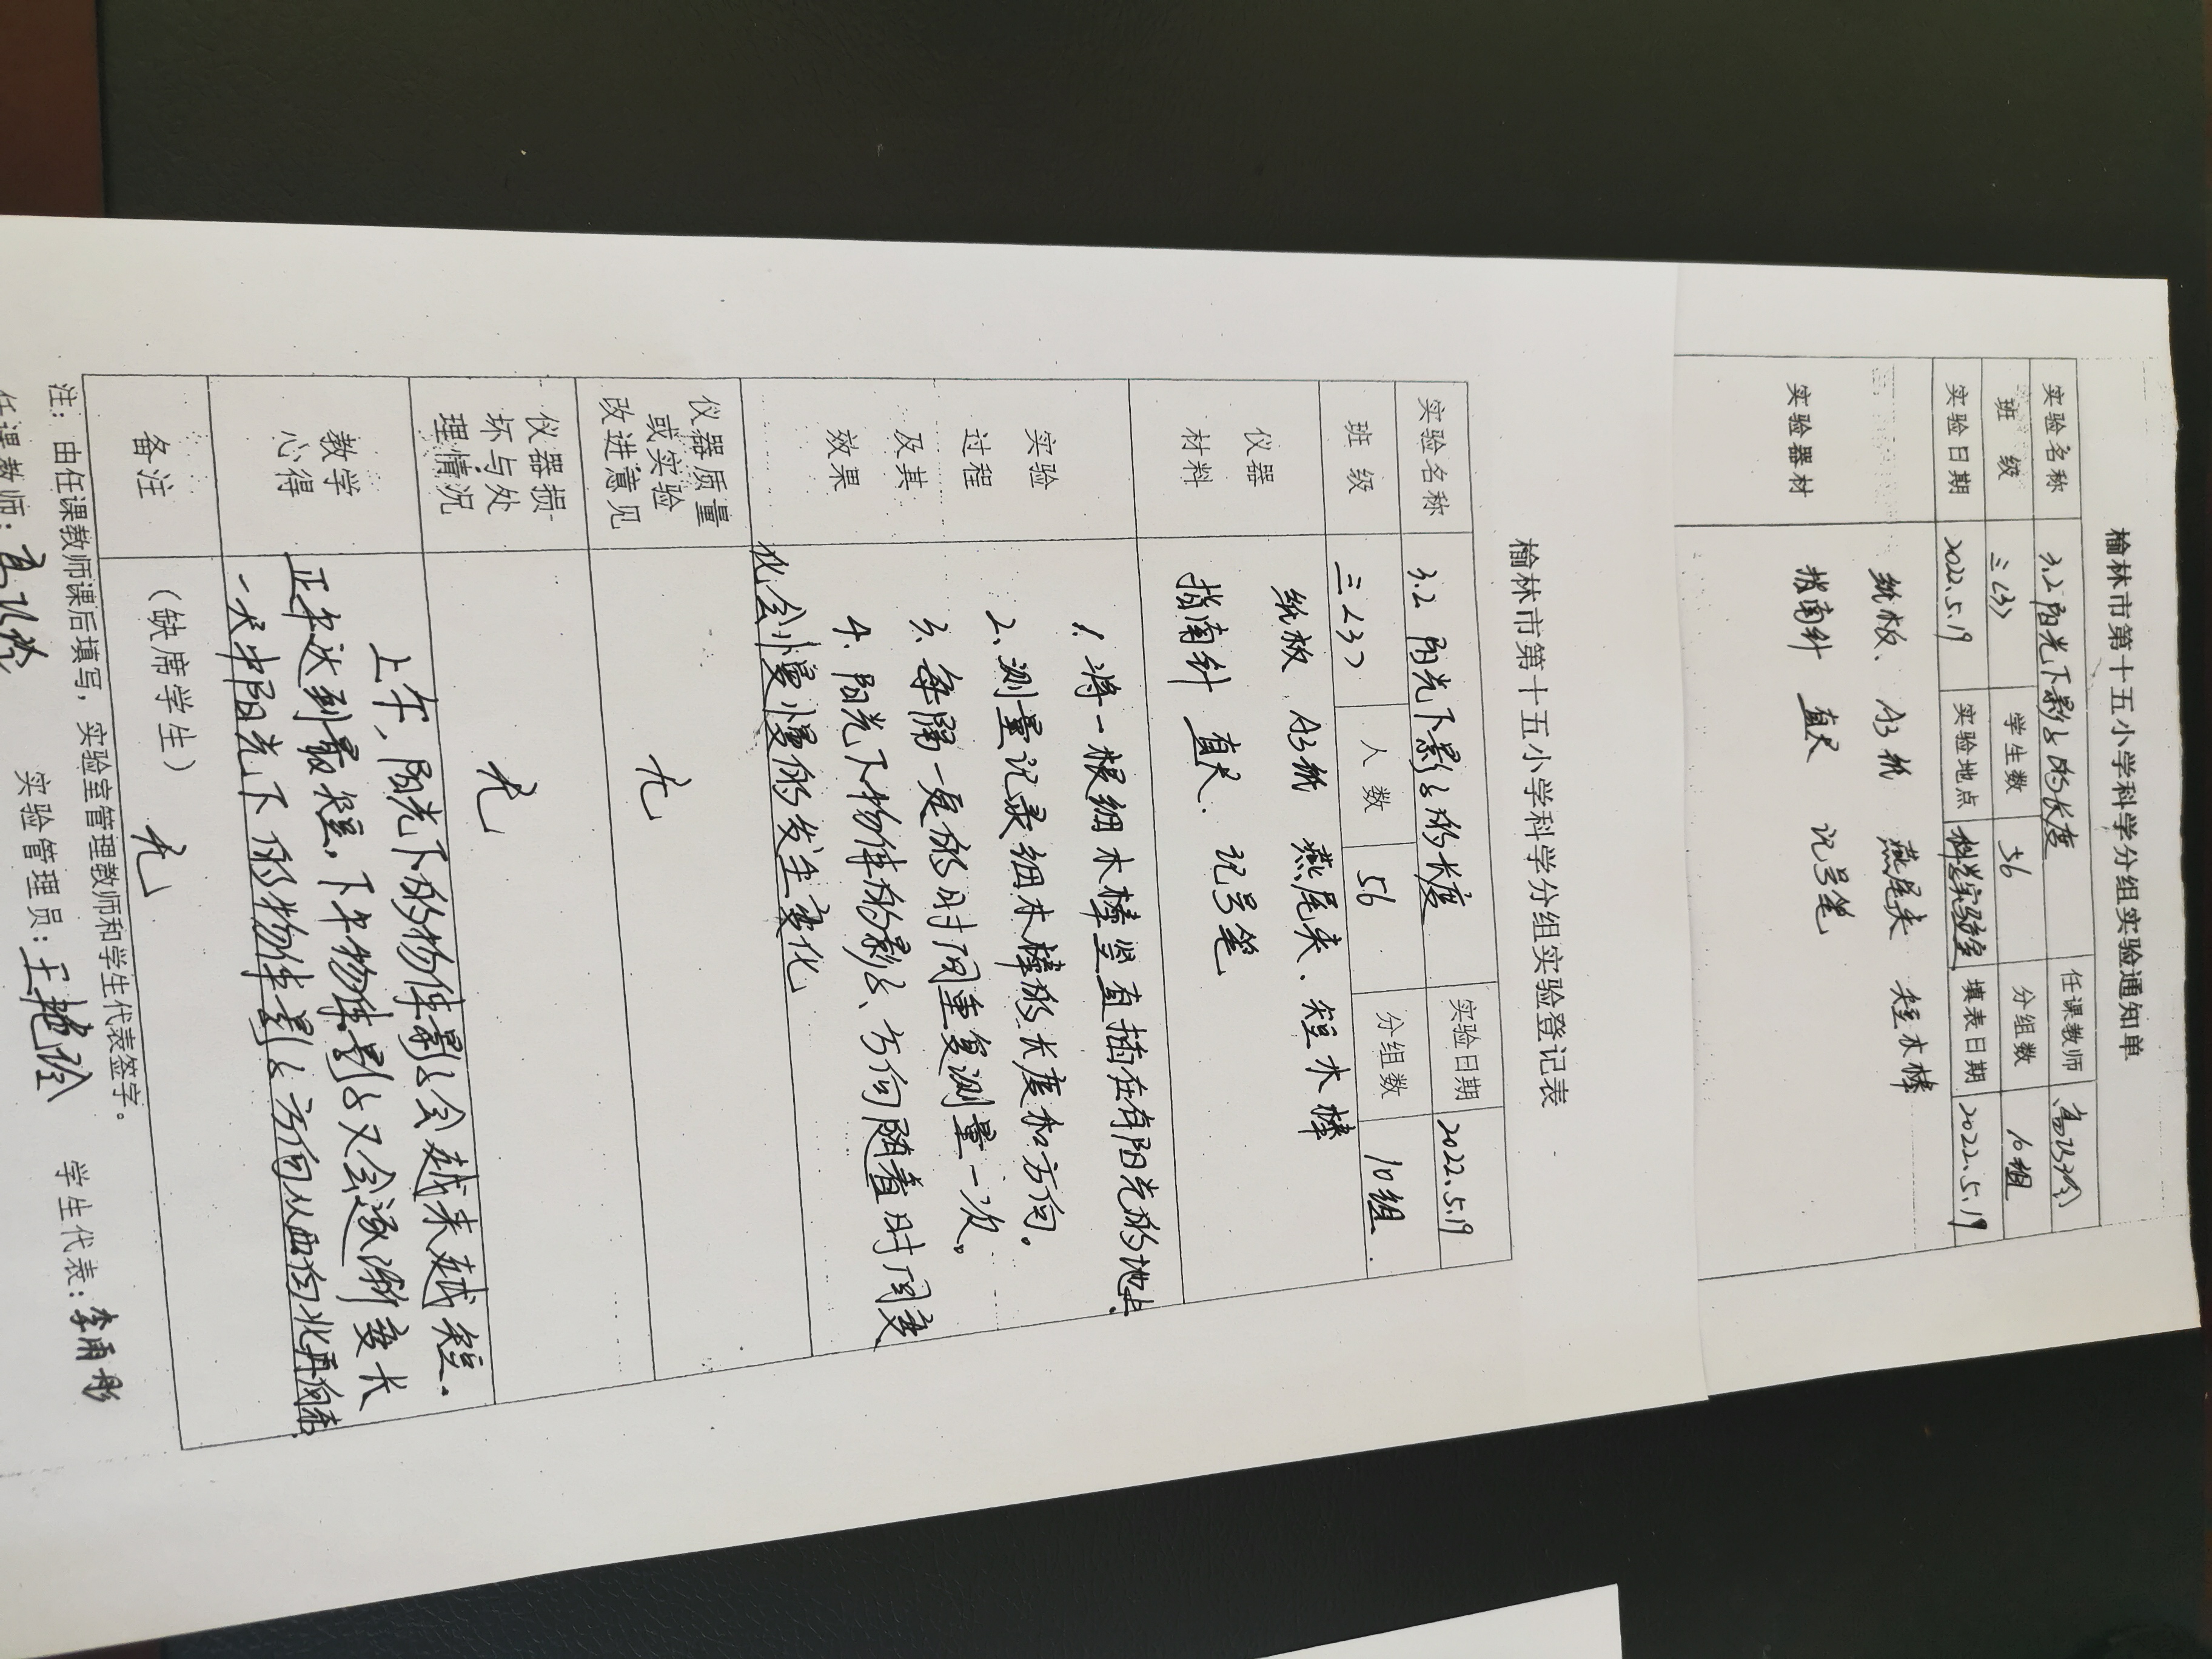 榆林市第十五小学科学分组实验通知单
实验名称 3.2阳光下影子的长度 任课教师
班 级 三(3) 学生数 56 分组数 10组
实验日期 2022.5.19 实验地点 科学实验室 填表日期 2022.5.19
实验器材 纸板、A3纸 燕尾夹 短木棒
指南针 直尺 记号笔
榆林市第十五小学科学分组实验登记表
实验名称 3.2 阳光下影子的长度 实验日期 2022.5.19
班 级 三(3) 人 数 56 分组数 10组.
仪器材料 纸板 A3纸 燕尾夹、短木棒
指南针 直尺. 记号笔
实验过程及其效果 1.将一根细木棒竖直插在有阳光的地上.
2.测量记录细木棒的长度和方向。
3.每隔一定的时间重复测量一次。
4.阳光下物体的影子、方向随着时间变
化会慢慢的发生变化
仪器质量或实验改进意见 无
仪器损坏与处理情况 无
教学心得 上午,阳光下的物体影子会越来越短.
正午达到最短,下午物体影子又会逐渐变长
一天中阳光下的物体影子方向从西向北再向东.
备注 (缺席学生) 无
注：由任课教师课后填写，实验室管理教师和学生代表签字。
任课教师： 实验管理员：王艳玲 学生代表：李雨彤